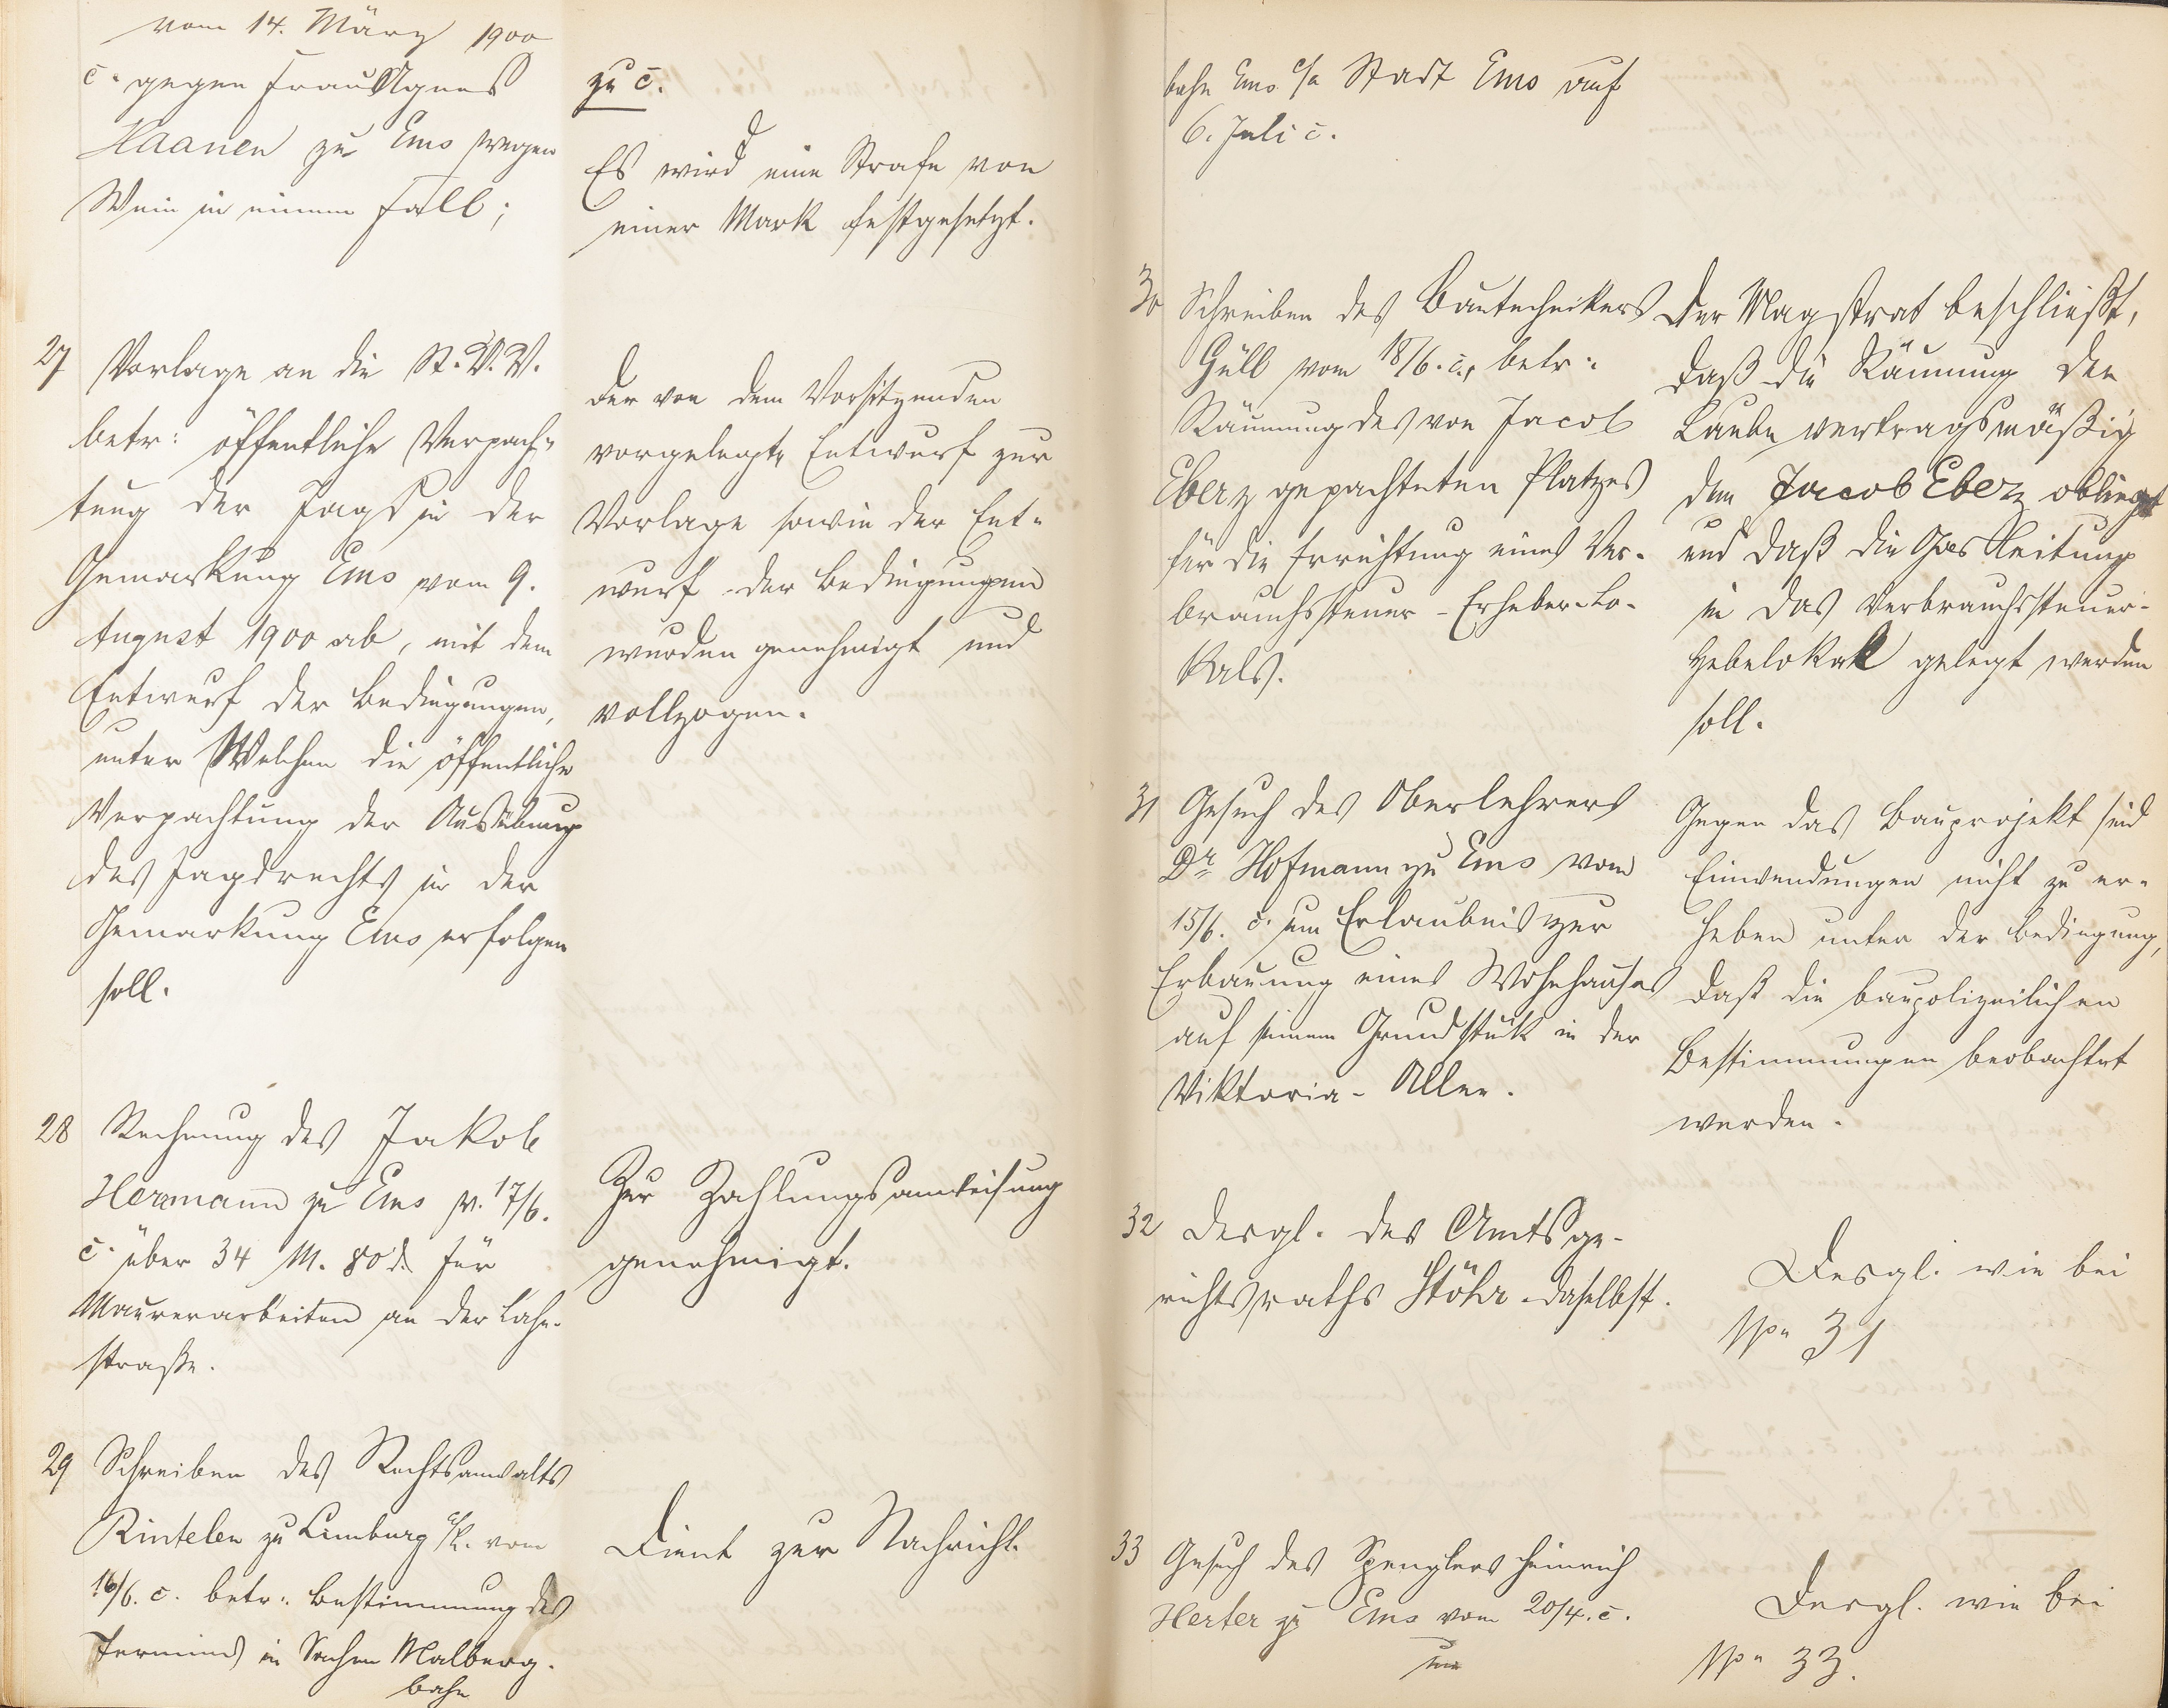 vom 14. März 1900
c. gegen Frau Agnes
Haanen zu Ems wegen
Wein in einem Fall;
zu c.
Es wird eine Strafe von
einer Mark festgesetzt.
27 Vorlage an die St. V. V.
betr: öffentliche Verpach-
tung der Jagd in der
Gemarkung Ems vom 9.
August 1900 ab, mit dem
Entwurf der Bedingungen,
unter Welchen die öffentliche
Verpachtung der Ausübung
des Jagdrechts in der
Gemarkung Ems erfolgen
soll.
Der von dem Vorsitzenden
vorgelegte Entwurf zur
Vorlage sowie der Ent-
wurf der Bedingungen
wurden genehmigt und
vollzogen.
28 Rechnung des Jakob
Hermann zu Ems v. 17/6.
c. über 34 M. 80 d. für
Maurerarbeiten an der Lahn-
straße.
Zur Zahlungsanweisung
genehmigt.
29 Schreiben des Rechtsanwalts
Rintelen zu Limburg a/L. vom
16/6. c. betr.: Bestimmung des
Termins in Sachen Malberg-
bahn
Dient zur Nachricht.
bahn Ems c/a Stadt Ems auf
6. Juli c.
30 Schreiben des Bautechnikers
Güll vom 18/6. c., betr:
Räumung des von Jacob
Eberz gepachteten Platzes
für die Errichtung eines Ver-
brauchssteuer-Erheber-Lo-
kals.
Der Magistrat beschließt,
daß die Räumung der
Laube vertragsmäßig
dem Jacob Eberz obliegt
und daß die Gasleitung
in das Verbrauchssteuer-
Hebelokal gelegt werden
soll.
31 Gesuch des Oberlehrers
Dr Hofmann zu Ems vom
15/6. c. um Erlaubnis zur
Erbauung eines Wohnhauses
auf seinem Grundstück in der
Viktoria-Allee.
Gegen das Bauprojekt sind
Einwendungen nicht zu er-
heben unter der Bedingung,
daß die baupolizeilichen
Bestimmungen beobachtet
werden.
32 Desgl. des Amtsge-
richtsraths Stöhr daselbst.
Desgl. wie bei
Nro 31
33 Gesuch des Spenglers Heinrich
Herter zu Ems vom 20/4. c.
um
Desgl. wie bei
Nro 33.